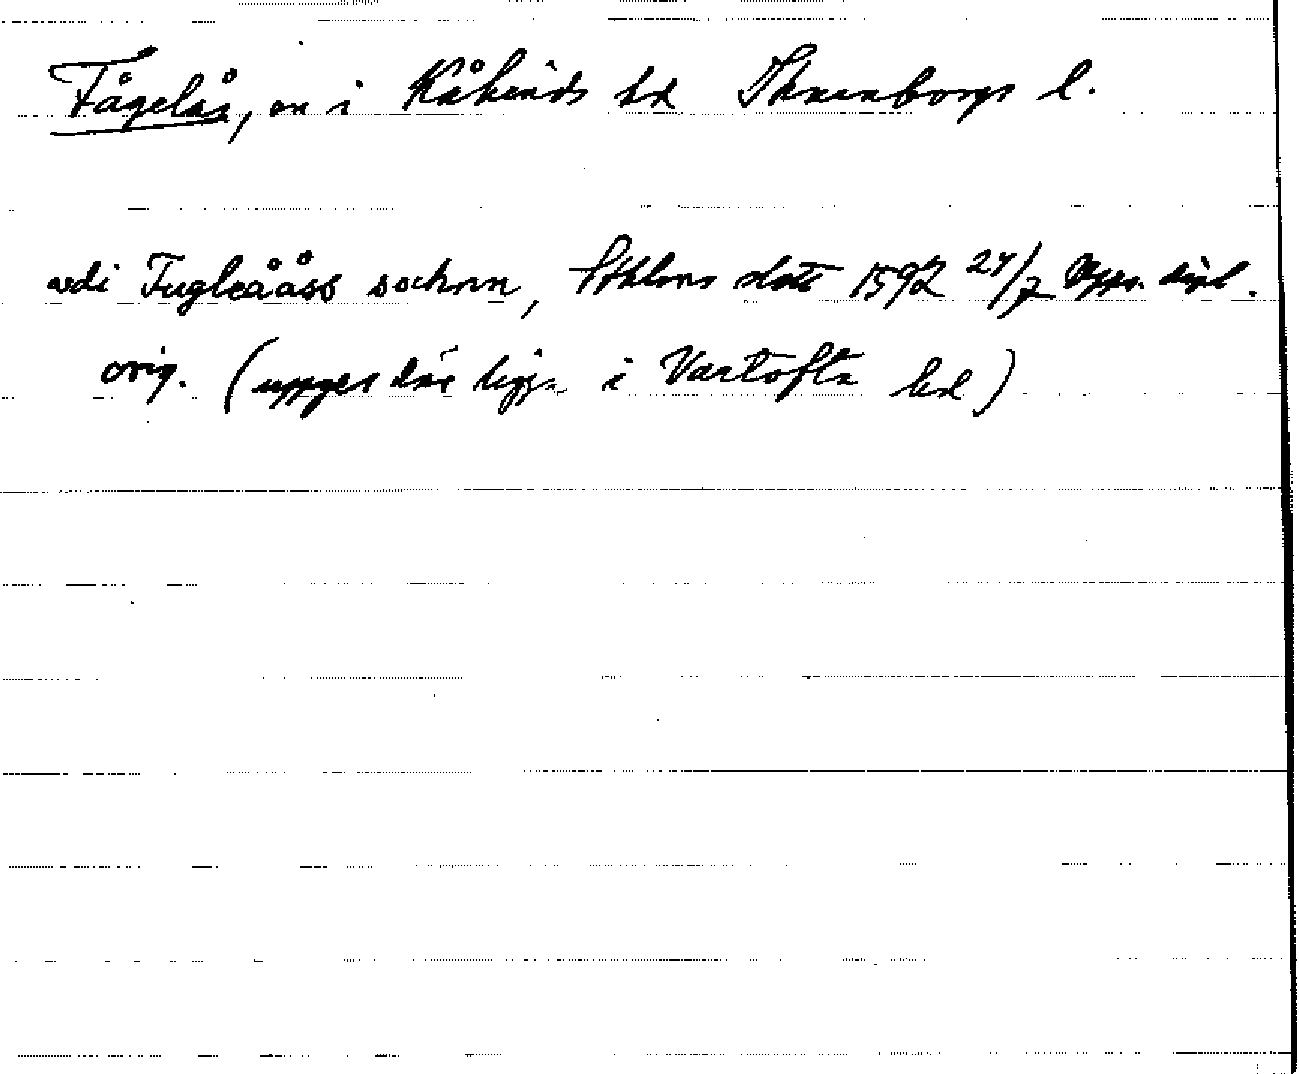 Fågelås, sn i Kåkinds hd Skaraborgs l.
vdi Fugleååss sochnn, Sthlms slott 1592 24/7 Upps. dipl.
orig. (uppges där ligga i Vartofta hd)